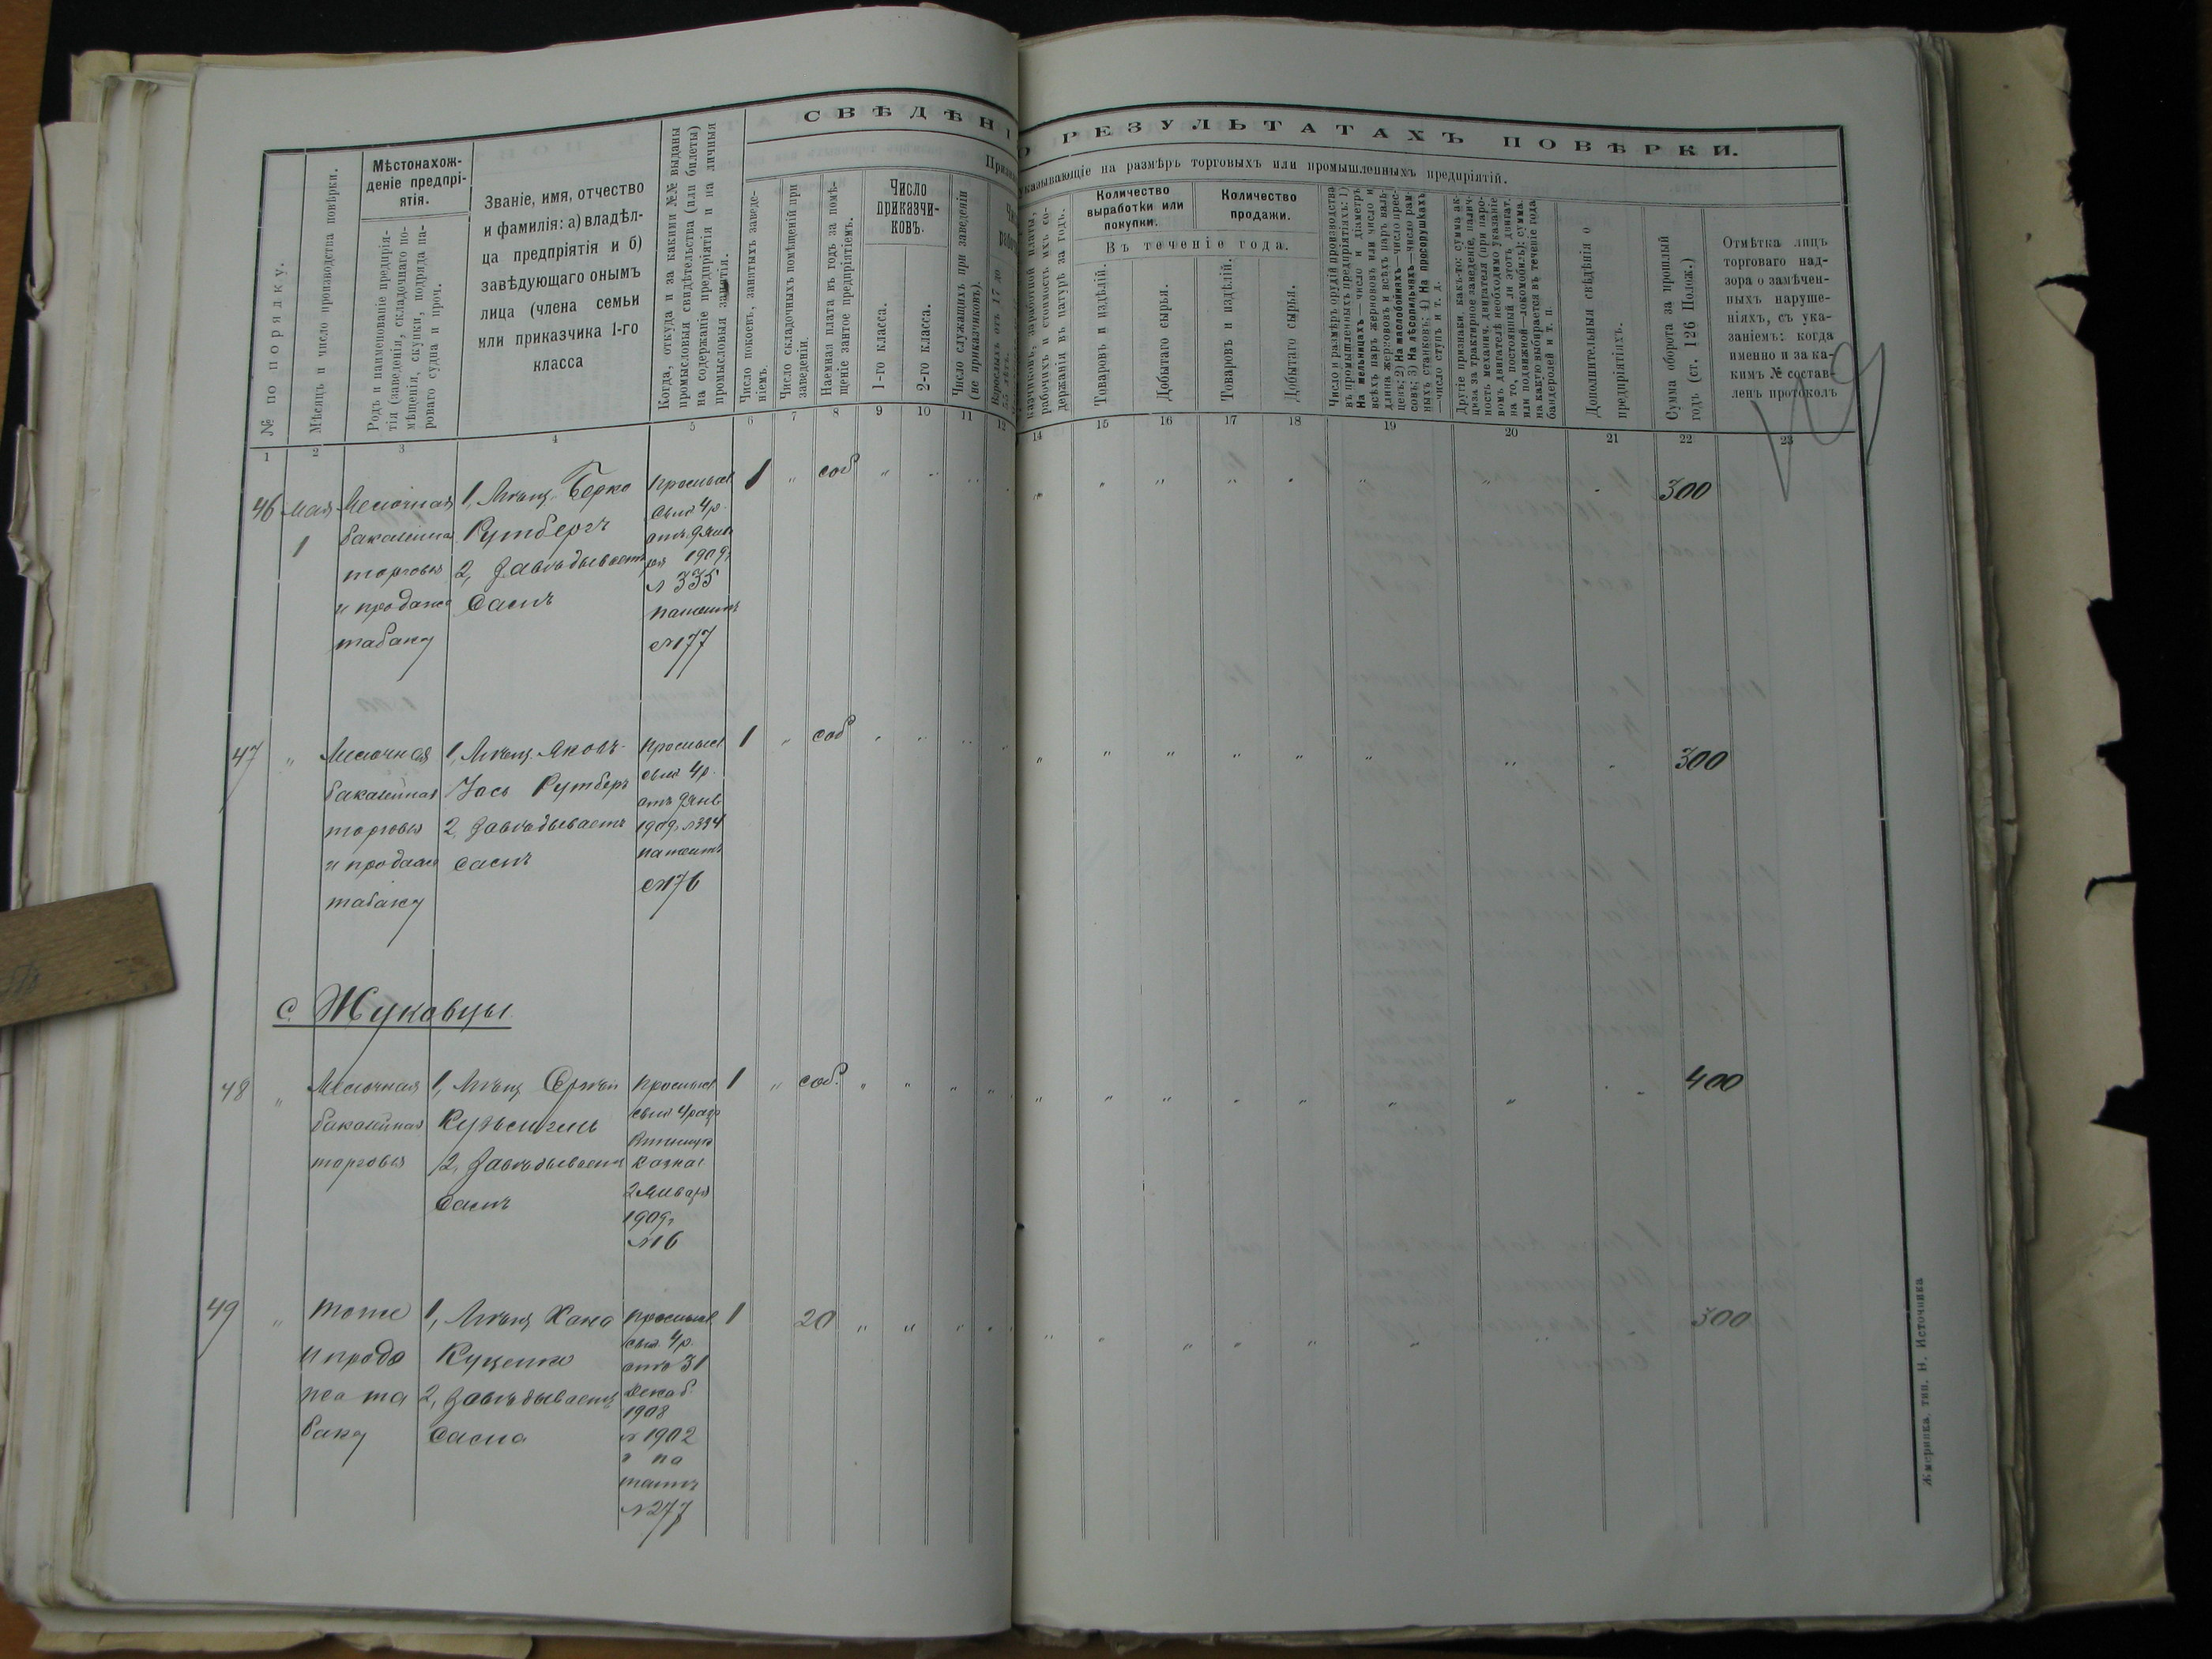 СВѢДѢНІ
О РЕЗУЛЬТАТАХЪ ПОВѢРКИ.
Призна
казывающіе на размѣръ торговыхъ или промышленныхъ предпріятій.
№ по порядку.
Мѣсяцъ и число производства повѣрки.
Мѣстонахож-
деніе предпрі-
ятія.
Родъ и наименованіе предпрія-
тія (заведенія, складочнаго по-
мѣщенія, скупки, подряда па-
роваго судна и проч.
Званіе, имя, отчество
и фамилія: а) владѣл-
ца предпріятія и б)
завѣдующаго онымъ
лица (члена семьи
или приказчика 1-го
класса
Когда, откуда и за какими №№ выданы
промысловыя свидѣтельства (или билеты)
на содержаніе предпріятія и на личныя
промысловыя занятія.
Число покоевъ, занятыхъ заведе-
ніемъ.
Число складочныхъ помѣщеній при
заведеніи.
Наемная плата въ годъ за помѣ-
щеніе занятое предпріятіемъ.
Число
приказчи-
ковъ.
1-го класса.
2-го класса.
Число служащихъ при заведеніи
(не приказчиковъ).
Взрослыхъ отъ 17 до
55 лѣтъ.
рабочихъ и стоимость ихъ со-
держанія въ натурѣ за годъ.
Количество
выработки или
покупки.
Количество
продажи.
Въ теченіе года.
Товаровъ и издѣлій.
Добытаго сырья.
Товаровъ и издѣлій.
Добытаго сырья.
Число и размѣръ орудій производства
въ промышленныхъ предпріятіяхъ: 1)
На мельницахъ—число и діаметръ
всѣхъ паръ жернововъ или число и
длина жернововъ и всѣхъ паръ валь-
цевъ; 2) На маслобойняхъ—число прес-
совъ; 3) На лѣсопильняхъ—число рам-
ныхъ станковъ; 4) На просорушкахъ
—число ступъ и т. д.
Другіе признаки, какъ-то: сумма ак-
циза за трактирное заведеніе, налич-
ность механич. двигателя (при паро-
вомъ двигателѣ необходимо указаніе
на то, постоянный ли этотъ двигат.
или подвижной—локомобиль); сумма.
на какую выбирается въ теченіе года
бандеролей и т. п.
Дополнительныя свѣдѣнія о
предпріятіяхъ.
Сумма оборота за прошлый
годъ (ст. 126 Полож.)
Отмѣтка лицъ
торговаго над-
зора о замѣчен-
ныхъ наруше-
ніяхъ, съ ука-
заніемъ: когда
именно и за ка-
кимъ № состав-
ленъ протоколъ
1 2 3 4 5 6 7 8 9 10 11 12 14 15 16 17 18 19 20 21 22 23
46 мая Мелочная 1, Мѣщ. Берко Промысл 1 " соб " 300
1 бакалейная Рутбергъ свид 4р.
торговля 2, Завѣдываетъ отъ 9 Янва
ря 1909г
и продажа Самъ № 335
табаку патентъ
№177
47 " Мелочная 1, Мѣщ. Яковъ- Промысл 1 " соб " 300
бакалейная Іось Рутберъ свид 4р.
торговля 2, Завѣдываетъ отъ 9 Янв
1909г №334
и продажа Самъ патентъ
табаку №176
с. Жуковцы
48 " Мелочная 1, Мѣщ. Промысл 1 " соб. " 400
бакалейная свид 4 разр
торговля 2, Завѣдываетъ Казнач
Самъ 2 Января
1909г
№16
49 " тоже 1, Мѣщ Хана Промысл 1 20 " 300
и прода свид. 4р.
жа та 2, Завѣдываетъ отъ 31
баку Сама Декаб.
1908
№ 1902
и па
тентъ
№277
Жмеринка, тип. Н. Источника